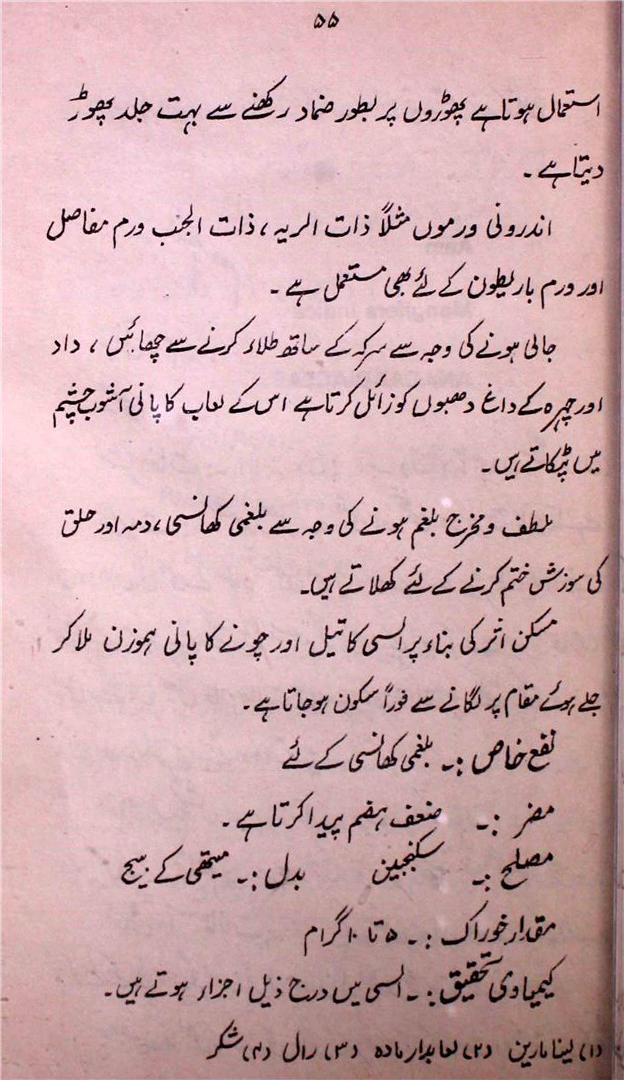 ۵۵
استعمال ہوتا ہے پھوڑوں پر بطور ضماد رکھنے سے بہت جلد پھوڑ
دیتا ہے ۔
اندرونی ورموں مثلاً ذات الریہ ، ذات الجنب ورم مفاصل
اور ورم باریطون کے لئے بھی مستعمل ہے ۔
جالی ہونے کی وجہ سے سرکہ کے ساتھ طلاء کرنے سے چھائیں ، داد
اور چہرہ کے داغ دھبوں کو زائل کرتا ہے اس کے لعاب کا پانی آشوب چشم
میں ٹپکاتے ہیں۔
ملطف و مخرج بلغم ہونے کی وجہ سے بلغمی کھانسی ، دمہ اور حلق
کی سوزش ختم کرنے کے لئے کھلاتے ہیں۔
مسکن اثر کی بناء پر السی کا تیل اور چونے کا پانی ہموزن ملا کر
جلے ہوئے مقام پر لگانے سے فوراً سکون ہو جاتا ہے۔
نفع خاص :۔ بلغمی کھانسی کے لئے
مضر :۔ ضعف ہضم پیدا کرتا ہے ۔
مصلح :۔ سکنجبین بدل :۔ میتھی کے بیج
مقدار خوراک :۔ ۵ تا ۱۰ گرام
کیمیاوی تحقیق :۔ السی میں درج ذیل اجزار ہوتے ہیں۔
(۱) لینامارین (۲) لعابدار مادہ (۳) رال (۴) شکر